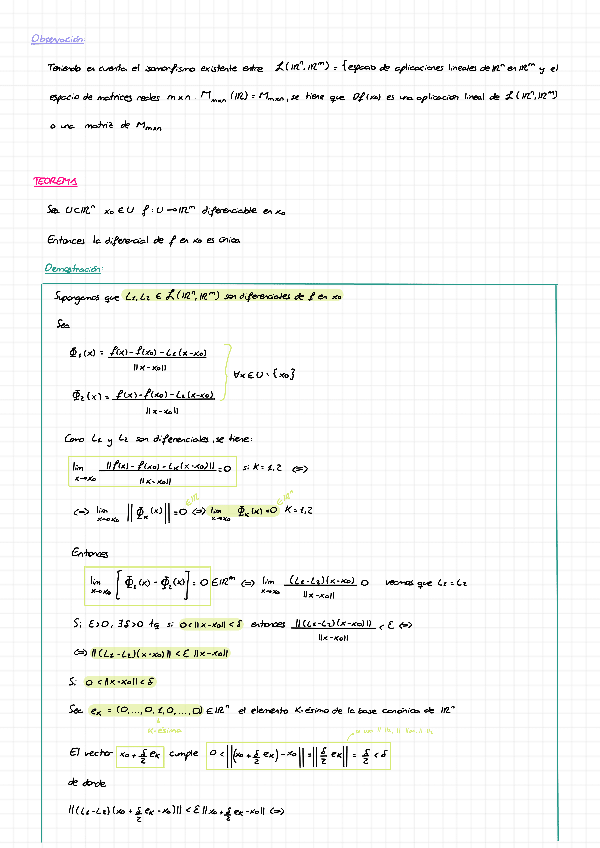 Observación:
Teniendo en cuenta el isomorfismo existente entre ℒ(ℝⁿ,ℝᵐ) = {espacio de aplicaciones lineales de ℝⁿ en ℝᵐ y el
espacio de matrices reales m×n. Mₘₓₙ(ℝ) = Mₘₓₙ, se tiene que Df(x₀) es una aplicación lineal de ℒ(ℝⁿ,ℝᵐ)
o una matriz de Mₘₓₙ
TEOREMA
Sea U⊂ℝⁿ x₀∈U f: U→ℝᵐ diferenciable en x₀
Entonces la diferencial de f en x₀ es única
Demostración:
Supongamos que L₁, L₂ ∈ ℒ(ℝⁿ,ℝᵐ) son diferenciales de f en x₀
Sea
Φ₁(x) = (f(x) - f(x₀) - L₁(x-x₀)) / ||x-x₀||
∀x∈U-{x₀}
Φ₂(x) = (f(x) - f(x₀) - L₂(x-x₀)) / ||x-x₀||
Como L₁ y L₂ son diferenciales, se tiene:
lim x→x₀ ||f(x) - f(x₀) - Lₖ(x-x₀)|| / ||x-x₀|| = 0 si K=1,2 <=>
<=> lim x→x₀ ||Φₖ(x)|| = 0 ∈ℝ <=> lim x→x₀ Φₖ(x) = 0 ∈ℝᵐ K=1,2
Entonces
lim x→x₀ [Φ₁(x) - Φ₂(x)] = 0 ∈ℝᵐ <=> lim x→x₀ (L₁-L₂)(x-x₀) / ||x-x₀|| 0 veamos que L₁=L₂
Si ε>0, ∃δ>0 tq si 0<||x-x₀||<δ entonces ||(L₁-L₂)(x-x₀)|| / ||x-x₀|| < ε <=>
<=> ||(L₁-L₂)(x-x₀)|| < ε ||x-x₀||
Si 0<||x-x₀||<δ
Sea eₖ = (0,...,0,1,0,...,0) ∈ℝⁿ el elemento K-ésimo de la base canónica de ℝⁿ
K-ésimo
El vector x₀ + δ/2 eₖ cumple 0 < ||(x₀ + δ/2 eₖ) - x₀|| = ||δ/2 eₖ|| = δ/2 < δ
de donde
||(L₁-L₂)(x₀ + δ/2 eₖ - x₀)|| < ε ||x₀ + δ/2 eₖ - x₀|| <=>